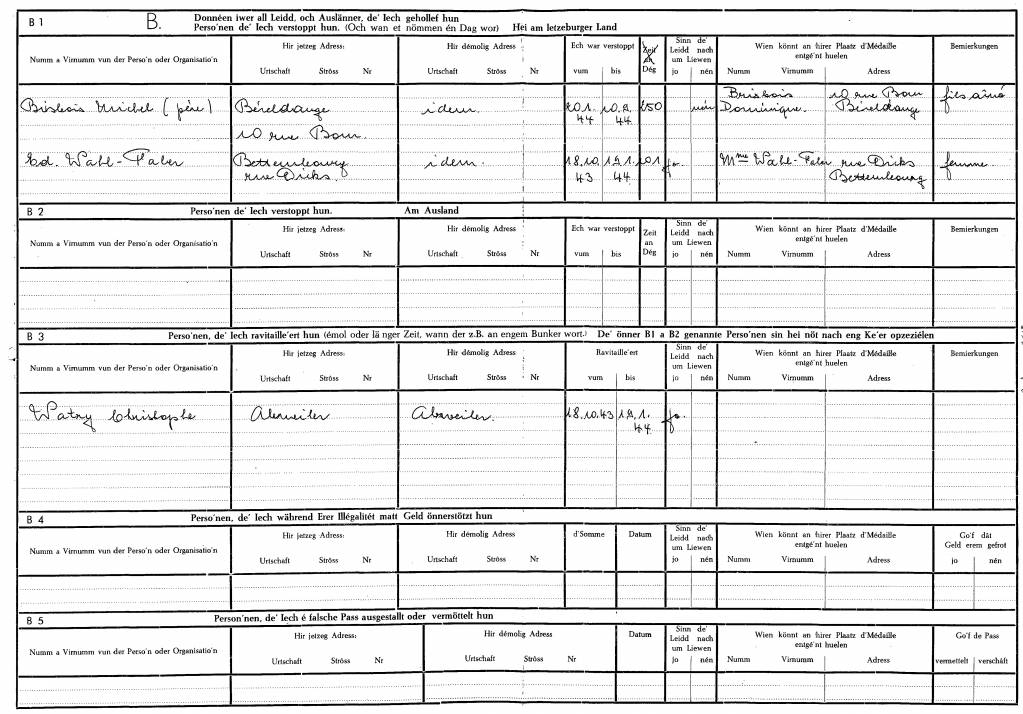 B 1 B. Donnéen iwer all Leidd, och Auslänner, de' Iech gehollef hun
Perso'nen de' Iech verstoppt hun. (Och wan et nömmen én Dag wor) Hei am letzeburger Land
Numm a Virnumm vun der Perso'n oder Organisatio'n
Hir jetzeg Adress:
Urtschaft Ströss Nr
Hir démolig Adress
Urtschaft Ströss Nr
Ech war verstoppt
vum bis
Zeit
an
Dég
Sinn de'
Leidd nach
um Liewen
jo nén
Wien könnt an hirer Plaatz d'Médaille
entgé'nt huelen
Numm Virnumm Adress
Bemierkungen
Brisbois Michel (père) Béreldange idem. 20.1. 10.9. 250 nén Brisbois 10 rue Bour fils aîné
44 44 Dominique. Béreldange
10 rue Bour.
Ed. Wahl-Faber Bettembourg idem. 18.10. 19.1. 101 jo. Mme Wahl-Faber rue Dicks femme.
rue Dicks. 43 44 Bettembourg
B 2 Perso'nen de' Iech verstoppt hun. Am Ausland
Numm a Virnumm vun der Perso'n oder Organisatio'n
Hir jetzeg Adress:
Urtschaft Ströss Nr
Hir démolig Adress
Urtschaft Ströss Nr
Ech war verstoppt
vum bis
Zeit
an
Dég
Sinn de'
Leidd nach
um Liewen
jo nén
Wien könnt an hirer Plaatz d'Médaille
entgé'nt huelen
Numm Virnumm Adress
Bemierkungen
B 3 Perso'nen, de' Iech ravitaille'ert hun (émol oder länger Zeit, wann der z.B. an engem Bunker wort.) De' önner B1 a B2 genannte Perso'nen sin hei nöt nach eng Ke'er opzeziélen
Numm a Virnumm vun der Perso'n oder Organisatio'n
Hir jetzeg Adress:
Urtschaft Ströss Nr
Hir démolig Adress
Urtschaft Ströss Nr
Ravitaille'ert
vum bis
Sinn de'
Leidd nach
um Liewen
jo nén
Wien könnt an hirer Plaatz d'Médaille
entgé'nt huelen
Numm Virnumm Adress
Bemierkungen
Watry Christophe Abweiler Abweiler. 18.10.43 19.1. jo.
44
B 4 Perso'nen, de' Iech während Erer Illégalitét matt Geld önnerstötzt hun
Numm a Virnumm vun der Perso'n oder Organisatio'n
Hir jetzeg Adress:
Urtschaft Ströss Nr
Hir démolig Adress
Urtschaft Ströss Nr
d'Somme
Datum
Sinn de'
Leidd nach
um Liewen
jo nén
Wien könnt an hirer Plaatz d'Médaille
entgé'nt huelen
Numm Virnumm Adress
Go'f dât
Geld erem gefrot
jo nén
B 5 Person'nen, de' Iech é falsche Pass ausgestallt oder vermöttelt hun
Numm a Virnumm vun der Perso'n oder Organisatio'n
Hir jetzeg Adress:
Urtschaft Ströss Nr
Hir démolig Adress
Urtschaft Ströss Nr
Datum
Sinn de'
Leidd nach
um Liewen
jo nén
Wien könnt an hirer Plaatz d'Médaille
entgé'nt huelen
Numm Virnumm Adress
Go'f de Pass
vermettelt verschäft